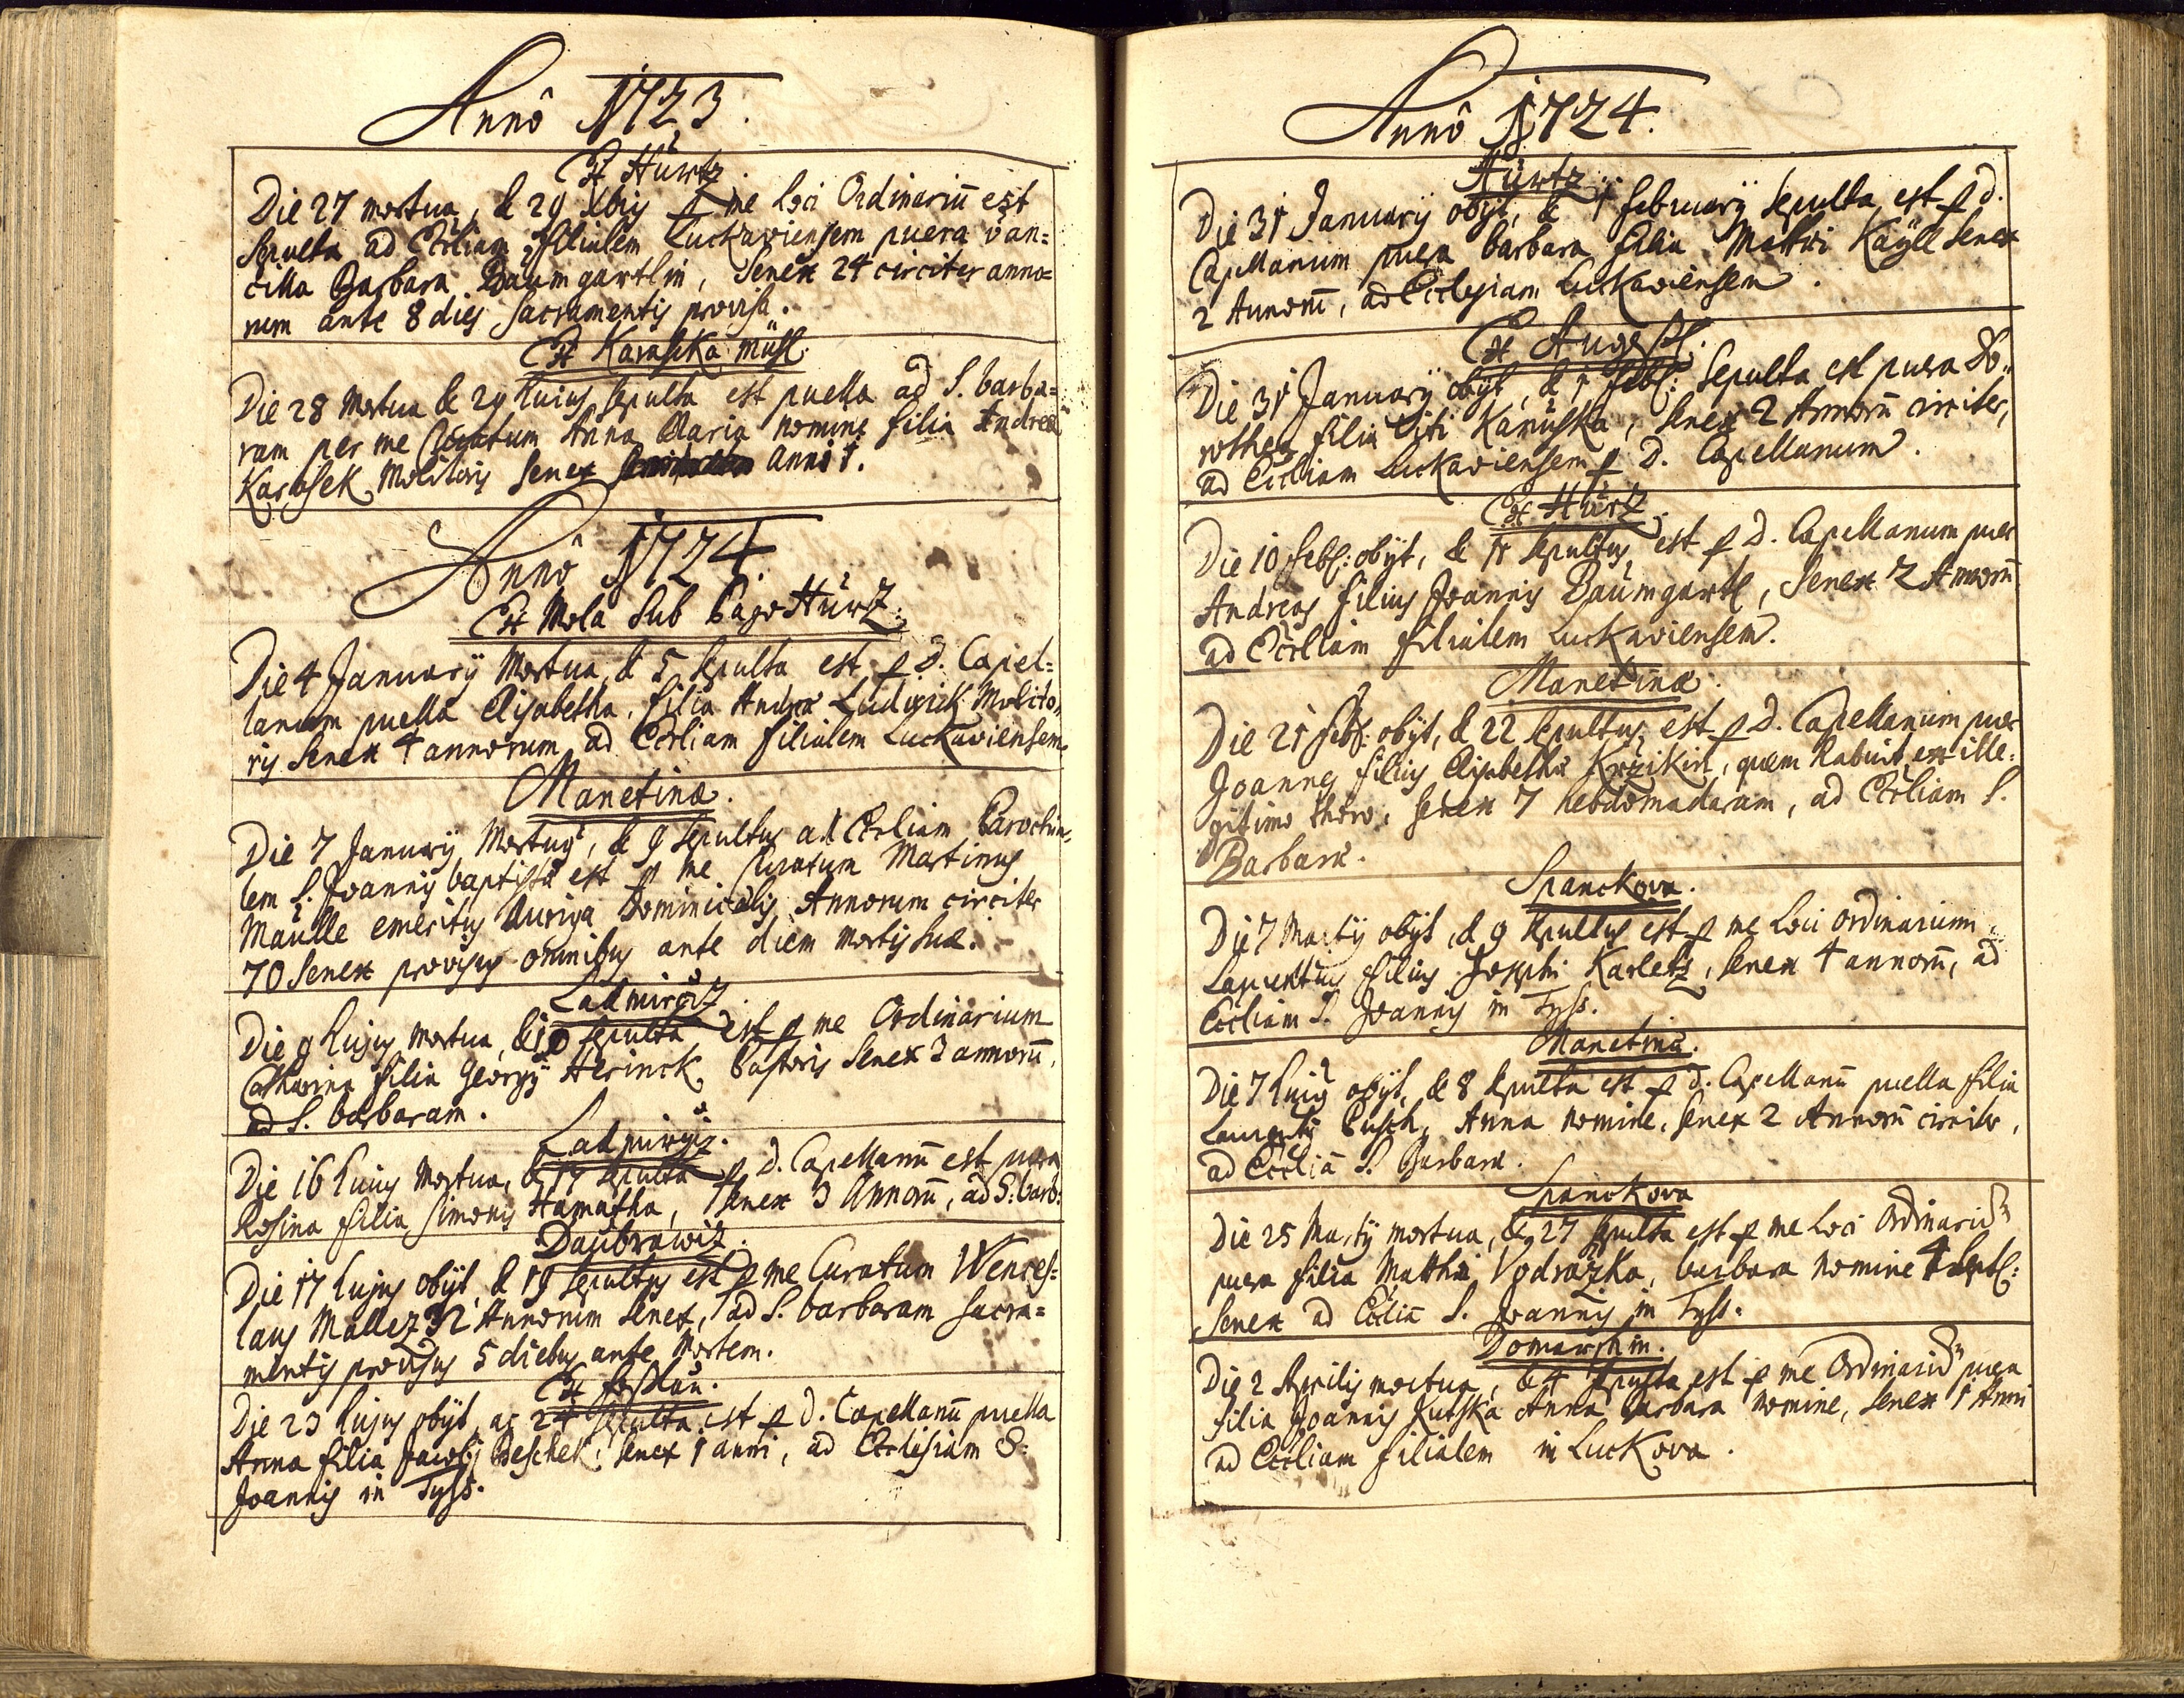 Annô 1723.
Ex Hürtz.
Die 27 mortua, & 29 Xbris p me loci Ordinariū est
sepulta ad Eccliam filialem Luckaviensem puera van=
cilla Barbara Baumgartlin, Senex 24 circiter anno=
rum ante 8 dies sacramentis provisa.
Ex Karaska Mühl.
Die 28 Mortua & 29 huius sepulta est puella ad S. Barba=
ram per me Curatum Anna Maria nomine filia Andreæ
Karasek Molitoris Senex anni 1.
Annô 1724.
Ex Mola sub Pago Hürtz.
Die 4 January Mortua, & 5 sepulta est p D. Capel=
lanum puella Elisabetha, filia Andreæ Ludwick Molito=
ris Senex 4 annorum ad Eccliam filialem Luckaviensem.
Manetinæ.
Die 7 January Mortuus, & 9 sepultus ad Eccliam Parochia=
lem S. Joannis baptistæ est p me Curatum Martinus
Maulle emeritus Auriga Dominicalis Annorum circiter
70 Senex provisus omnibus ante diem mortis suæ.
Ladmirziz.
Die 9 hujus mortua, & 10 sepulta est p me Ordinarium
Catharina filia Georgy Herinck Pastoris Senex 3 annorū,
ad S. barbaram.
Ladmirziz.
Die 16 huius Mortua, & 17 sepulta p d. Capellanū est puera
Rosina filia Simonis Hamatha, Senex 3 Annorū, ad S: barb:
Daubrawitz.
Die 17 hujus obÿt, & 19 sepultus est p me Curatum Wences=
laus Mallez 32 Annorum senex, ad S. barbaram sacra=
mentis provisus 5 diebus ante Mortem.
Ex
Die 23 hujus obÿt, ac 24 sepulta est p d. Capellanū puella
Anna filia Jacobi Beschek, Senex 1 anni, ad Ecclesiam S:
Joannis in Tyss.
Annô 1724.
Hürtz.
Die 31 January obÿt, & 1 february sepulta est p d.
Capellanum puera barbara filia Mathæi Kaÿll Senex
2 Annorū, ad Ecclesiam Luckaviensem.
Ex Augezd.
Die 31 January obÿt, & 1 feb: Sepulta est puera Do=
rothea filia Viti Kanuska, Senex 2 Annorū circiter,
ad Eccliam Luckaviensem p D. Capellanum.
Ex Hürtz.
Die 10 feb: obÿt, & 11 sepultus est p D. Capellanum puer
Andreas filius Joannis Baumgartl, Senex 2 Annorū
ad Eccliam filialem Luckaviensem.
Manetinæ.
Die 21 feb: obÿt, & 22 sepultus est p D. Capellanum puer
Joannes filius Elisabethæ Krzikin, quem habuit ex ille=
gitimo thoro, senex 7 hebdomadarum, ad Eccliam S.
Barbaræ.
Spanckova.
Die 7 Marty obÿt, & 9 sepultus est p me Loci Ordinarium
Laurentius filius Josephi Karletz, senex 4 annorū, ad
Eccliam S. Joannis in Tyss.
Manetinæ.
Die 7 huius obÿt, & 8 sepulta est p d. Capellanū puella filia
Laurenty Pusch, Anna nomine, senex 2 Annorū circiter,
ad Eccliā S. Barbaræ.
Spanckova
Die 25 Marty mortua, & 27 sepulta est p me Loci Ordinariū
puera filia Matthiæ Vodrazka, barbara nomine 4 Sept:
Senex ad Eccliā S. Joannis in Tyss.
Domaschin.
Die 2 Aprilis mortua, & 4 sepulta est p me Ordinariū puera
filia Joannis Kutska Anna Barbara nomine, senex 1 Anni
ad Eccliam filialem in Luckova.